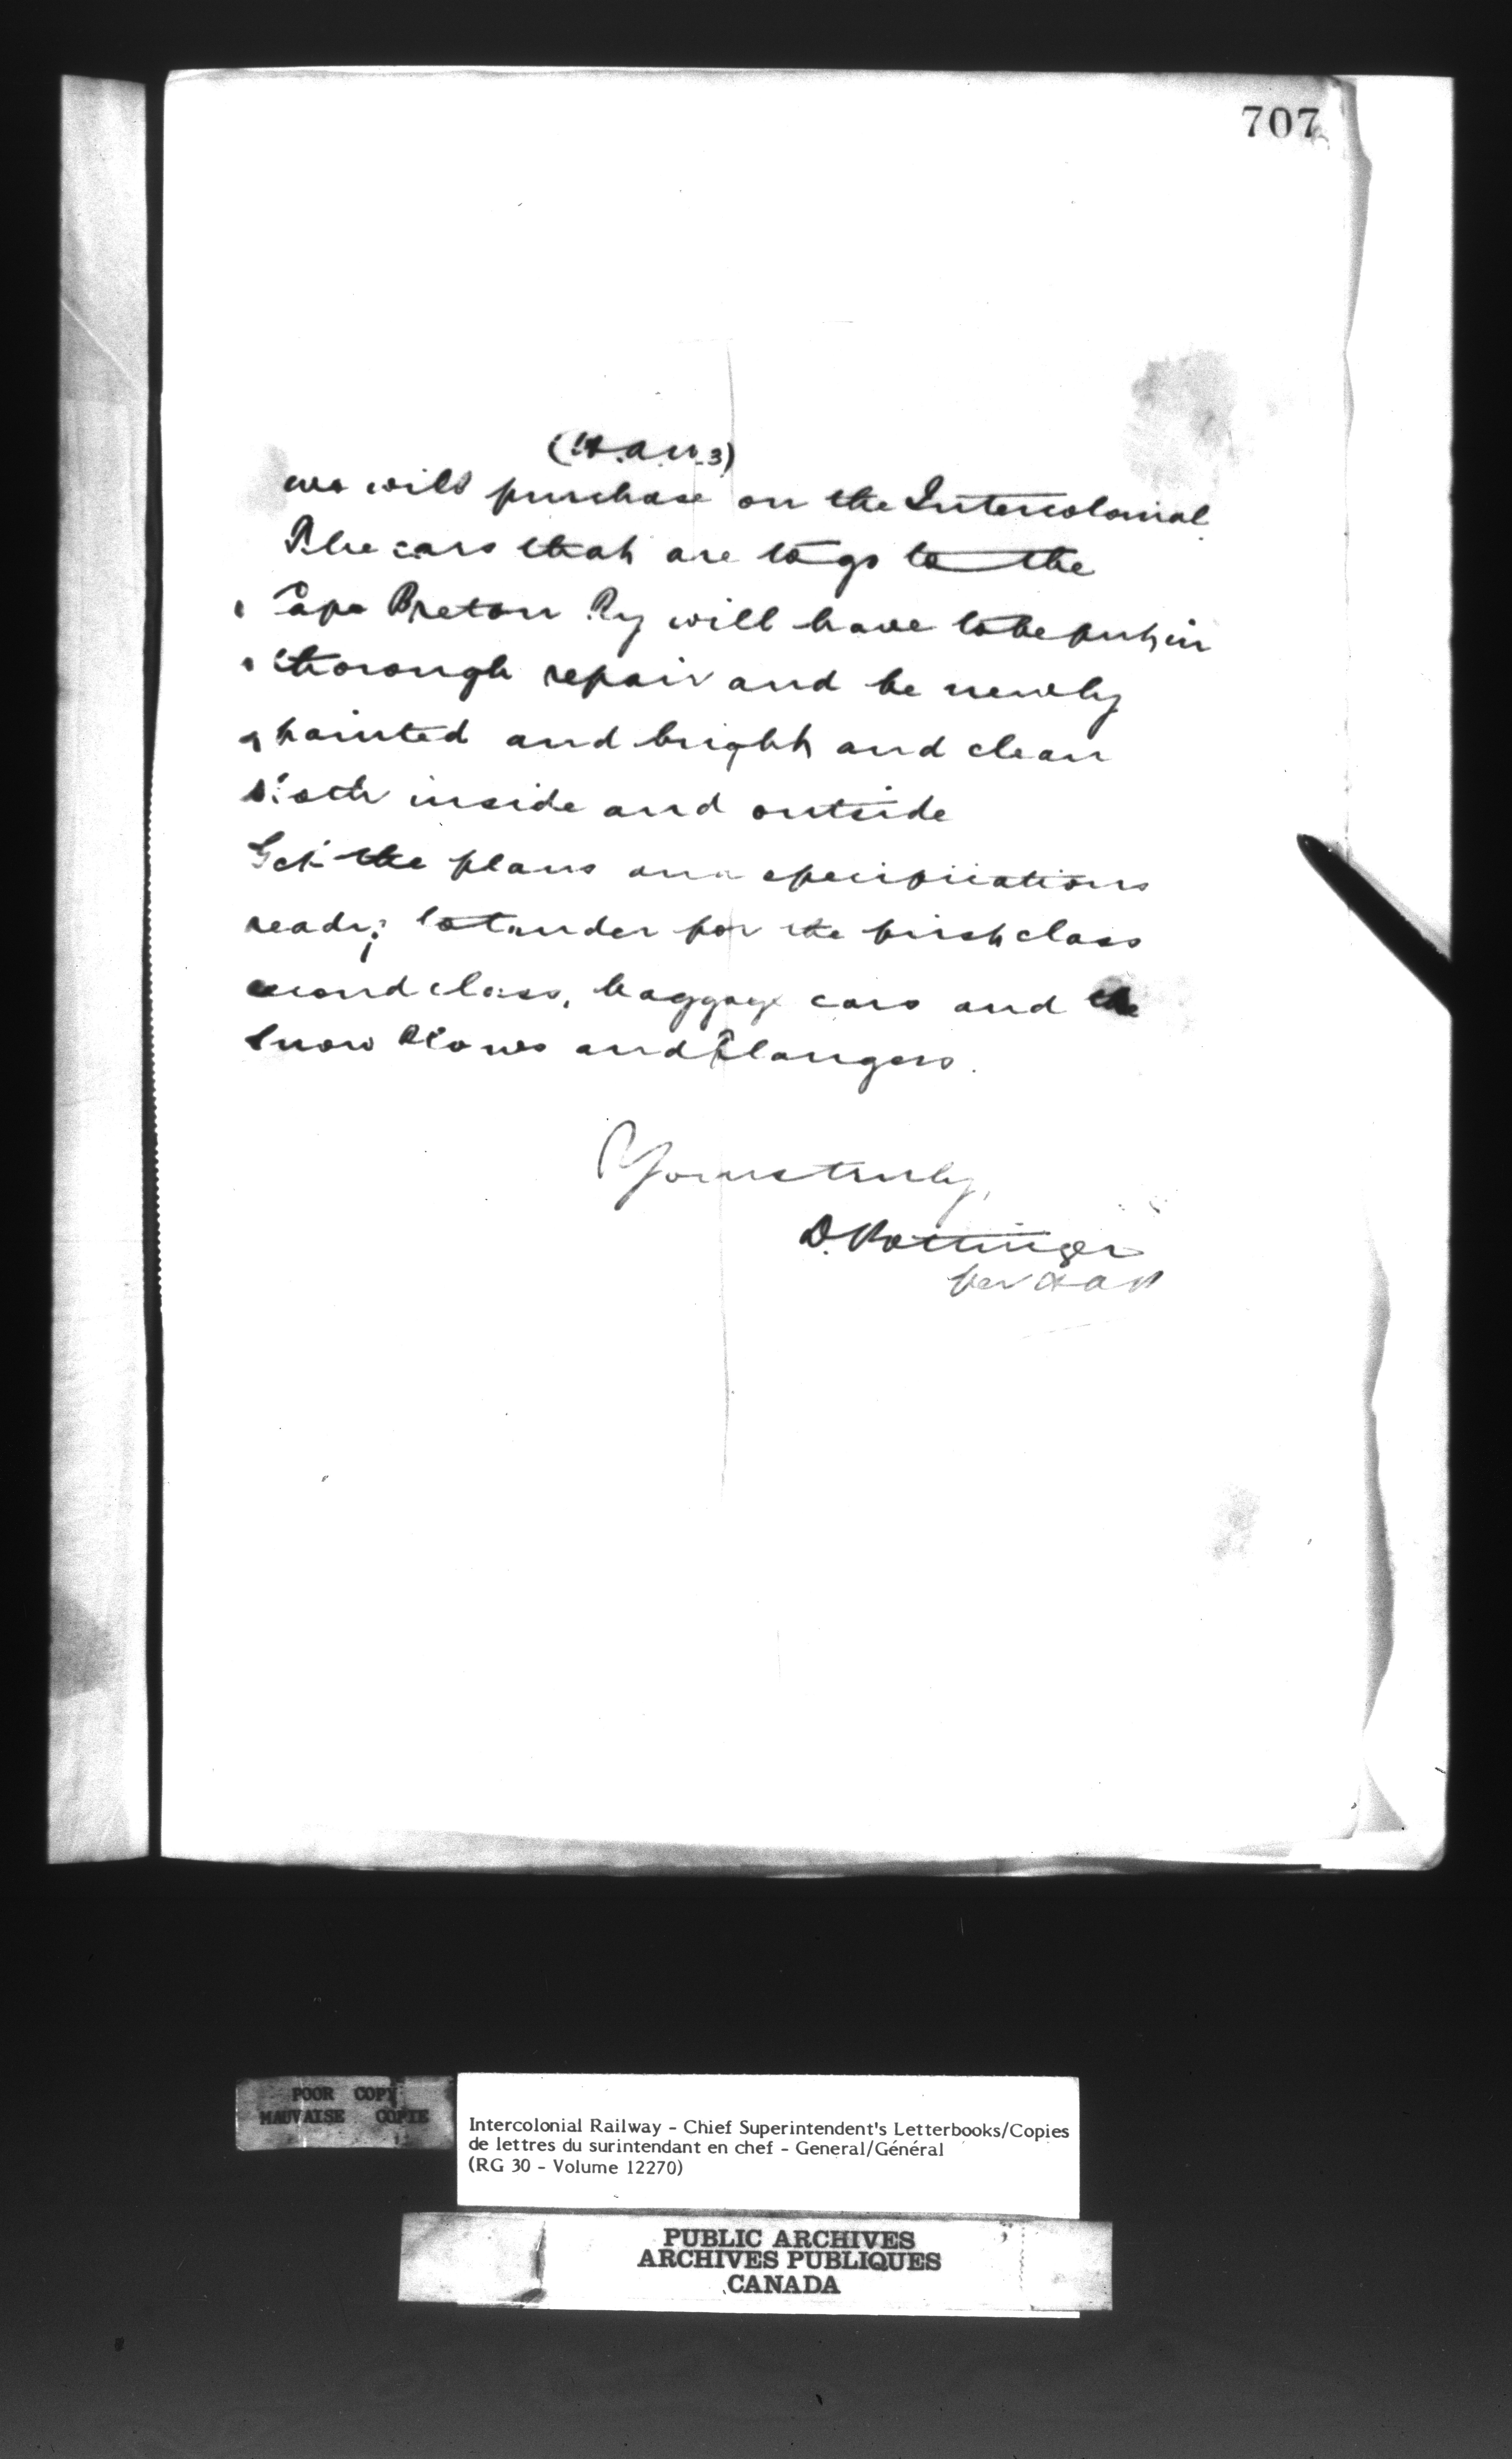 707
(H.A.W. 3)
we will purchase on the Intercolonial
The cars that are to go to the
Cape Breton Ry will have to be put in
thorough repair and be newly
painted and bright and clean
both inside and outside
Get the plans and specifications
ready to tender for the first class
second class, baggage cars and the
Snow Plows and Flangers.
Yours truly,
D. Pottinger
per
POOR COPY
MAUVAISE COPIE
Intercolonial Railway - Chief Superintendent's Letterbooks/Copies
de lettres du surintendant en chef - General/Général
(RG 30 - Volume 12270)
PUBLIC ARCHIVES
ARCHIVES PUBLIQUES
CANADA